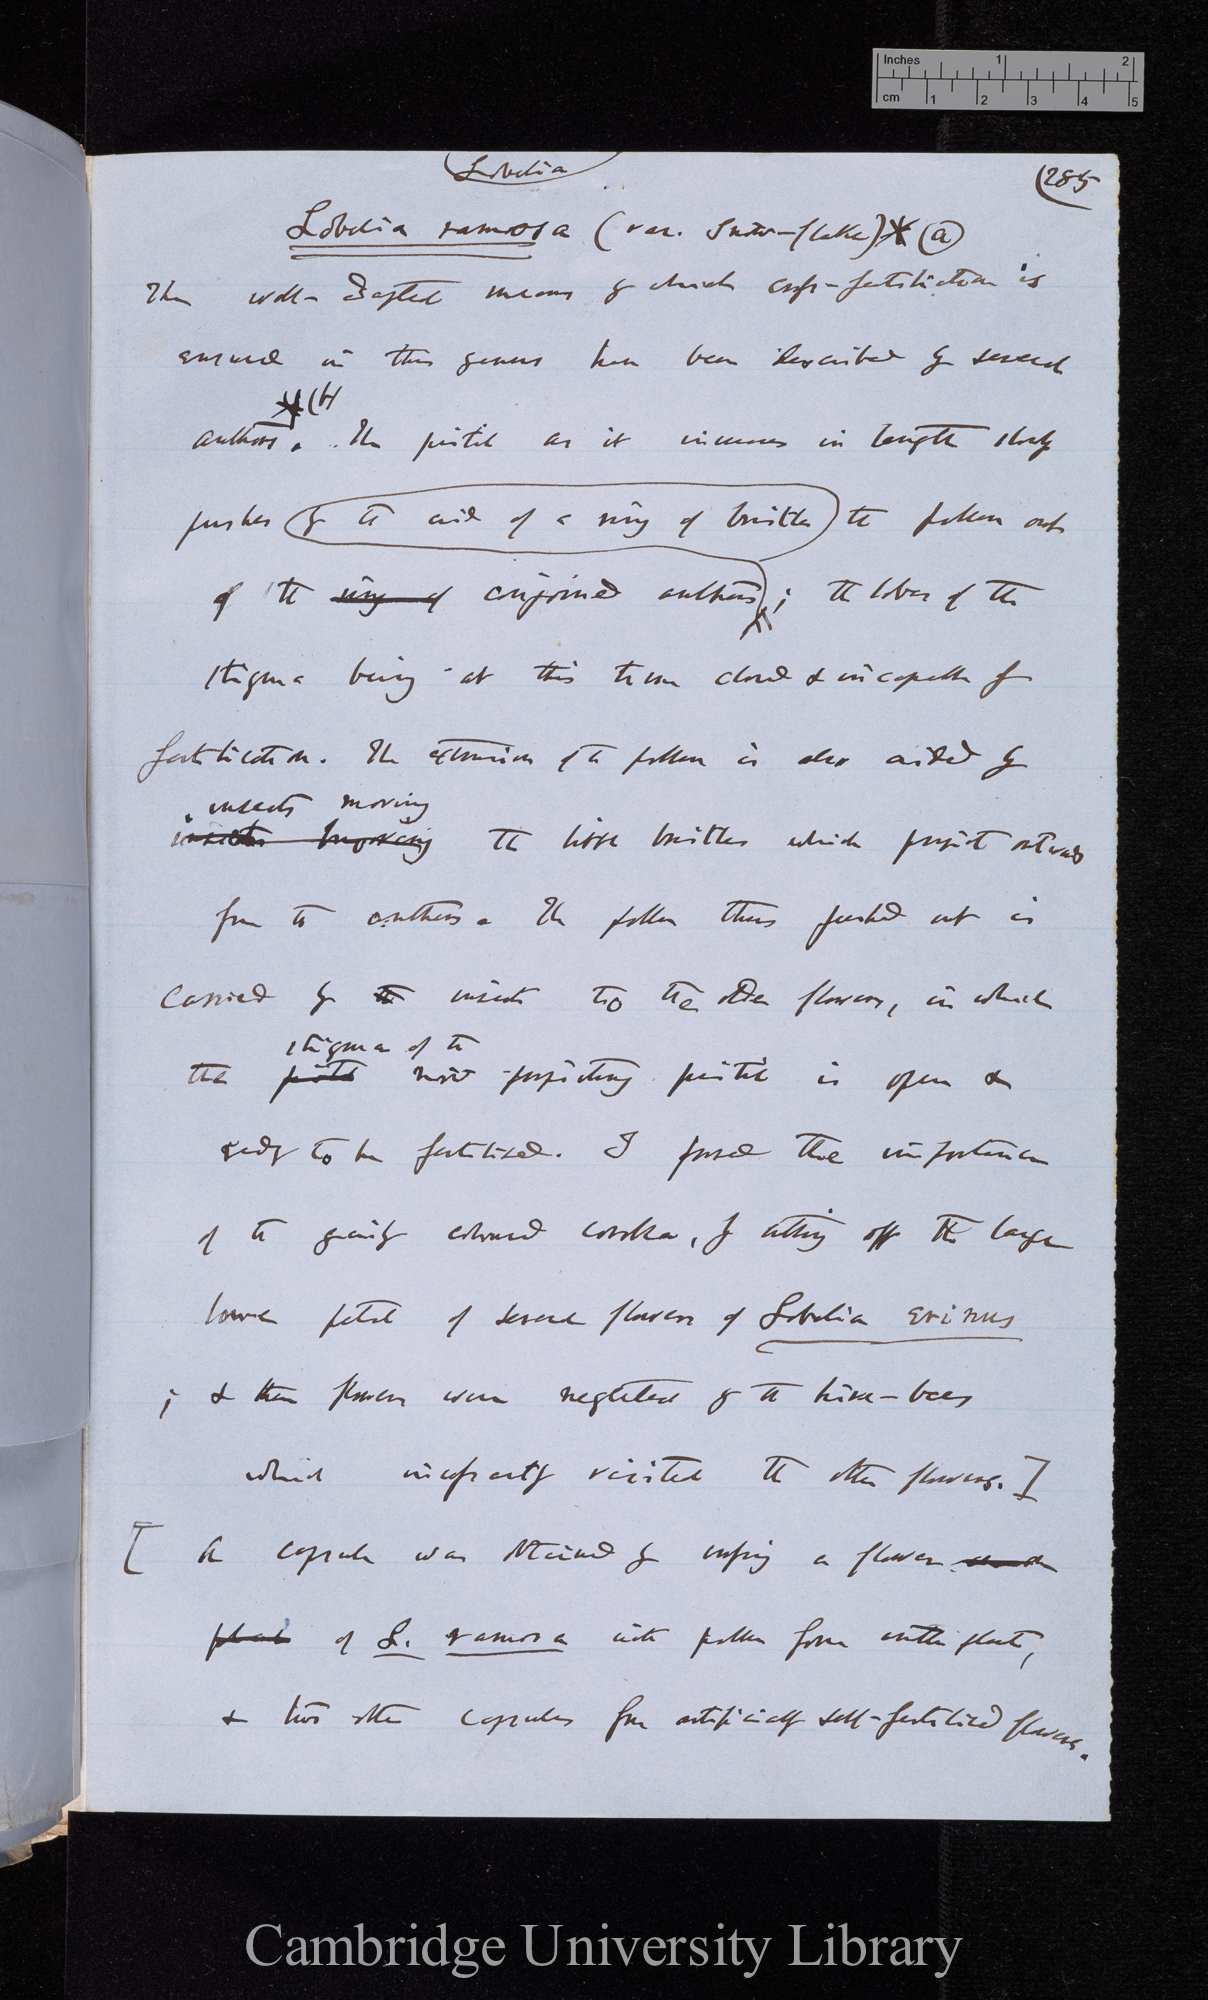 Inches 1 2
cm 1 2 3 4 5
Lobelia
(285
Lobelia ramosa (var. Snow-flake)* (a)
The well-adapted means by which cross-fertilisation is
ensured in this genus have been described by several
*(b)
authors. The pistil as it increases in length slowly
pushes (by the aid of a ring of bristles) the pollen out
of the ring of conjoined anthers; the lobes of the
stigma being at this time closed & incapable of
fertilisation. The extrusion of the pollen is also aided by
insects moving
insects moving the little bristles which project outwards
from the anthers. The pollen thus pushed out is
carried by the insects to the older flowers, in which
stigma of the
the pistil now projecting pistil is open &
ready to be fertilised. I proved the importance
of the gaily coloured corolla, by cutting off the large
lower petal of several flowers of Lobelia erinus
; & these flowers were neglected by the hive-bees
which incessantly visited the other flowers.]
[A capsule was obtained by crossing a flower
plant of L. ramosa with pollen from another plant,
& two other capsules from artificially self-fertilised flowers.
Cambridge University Library